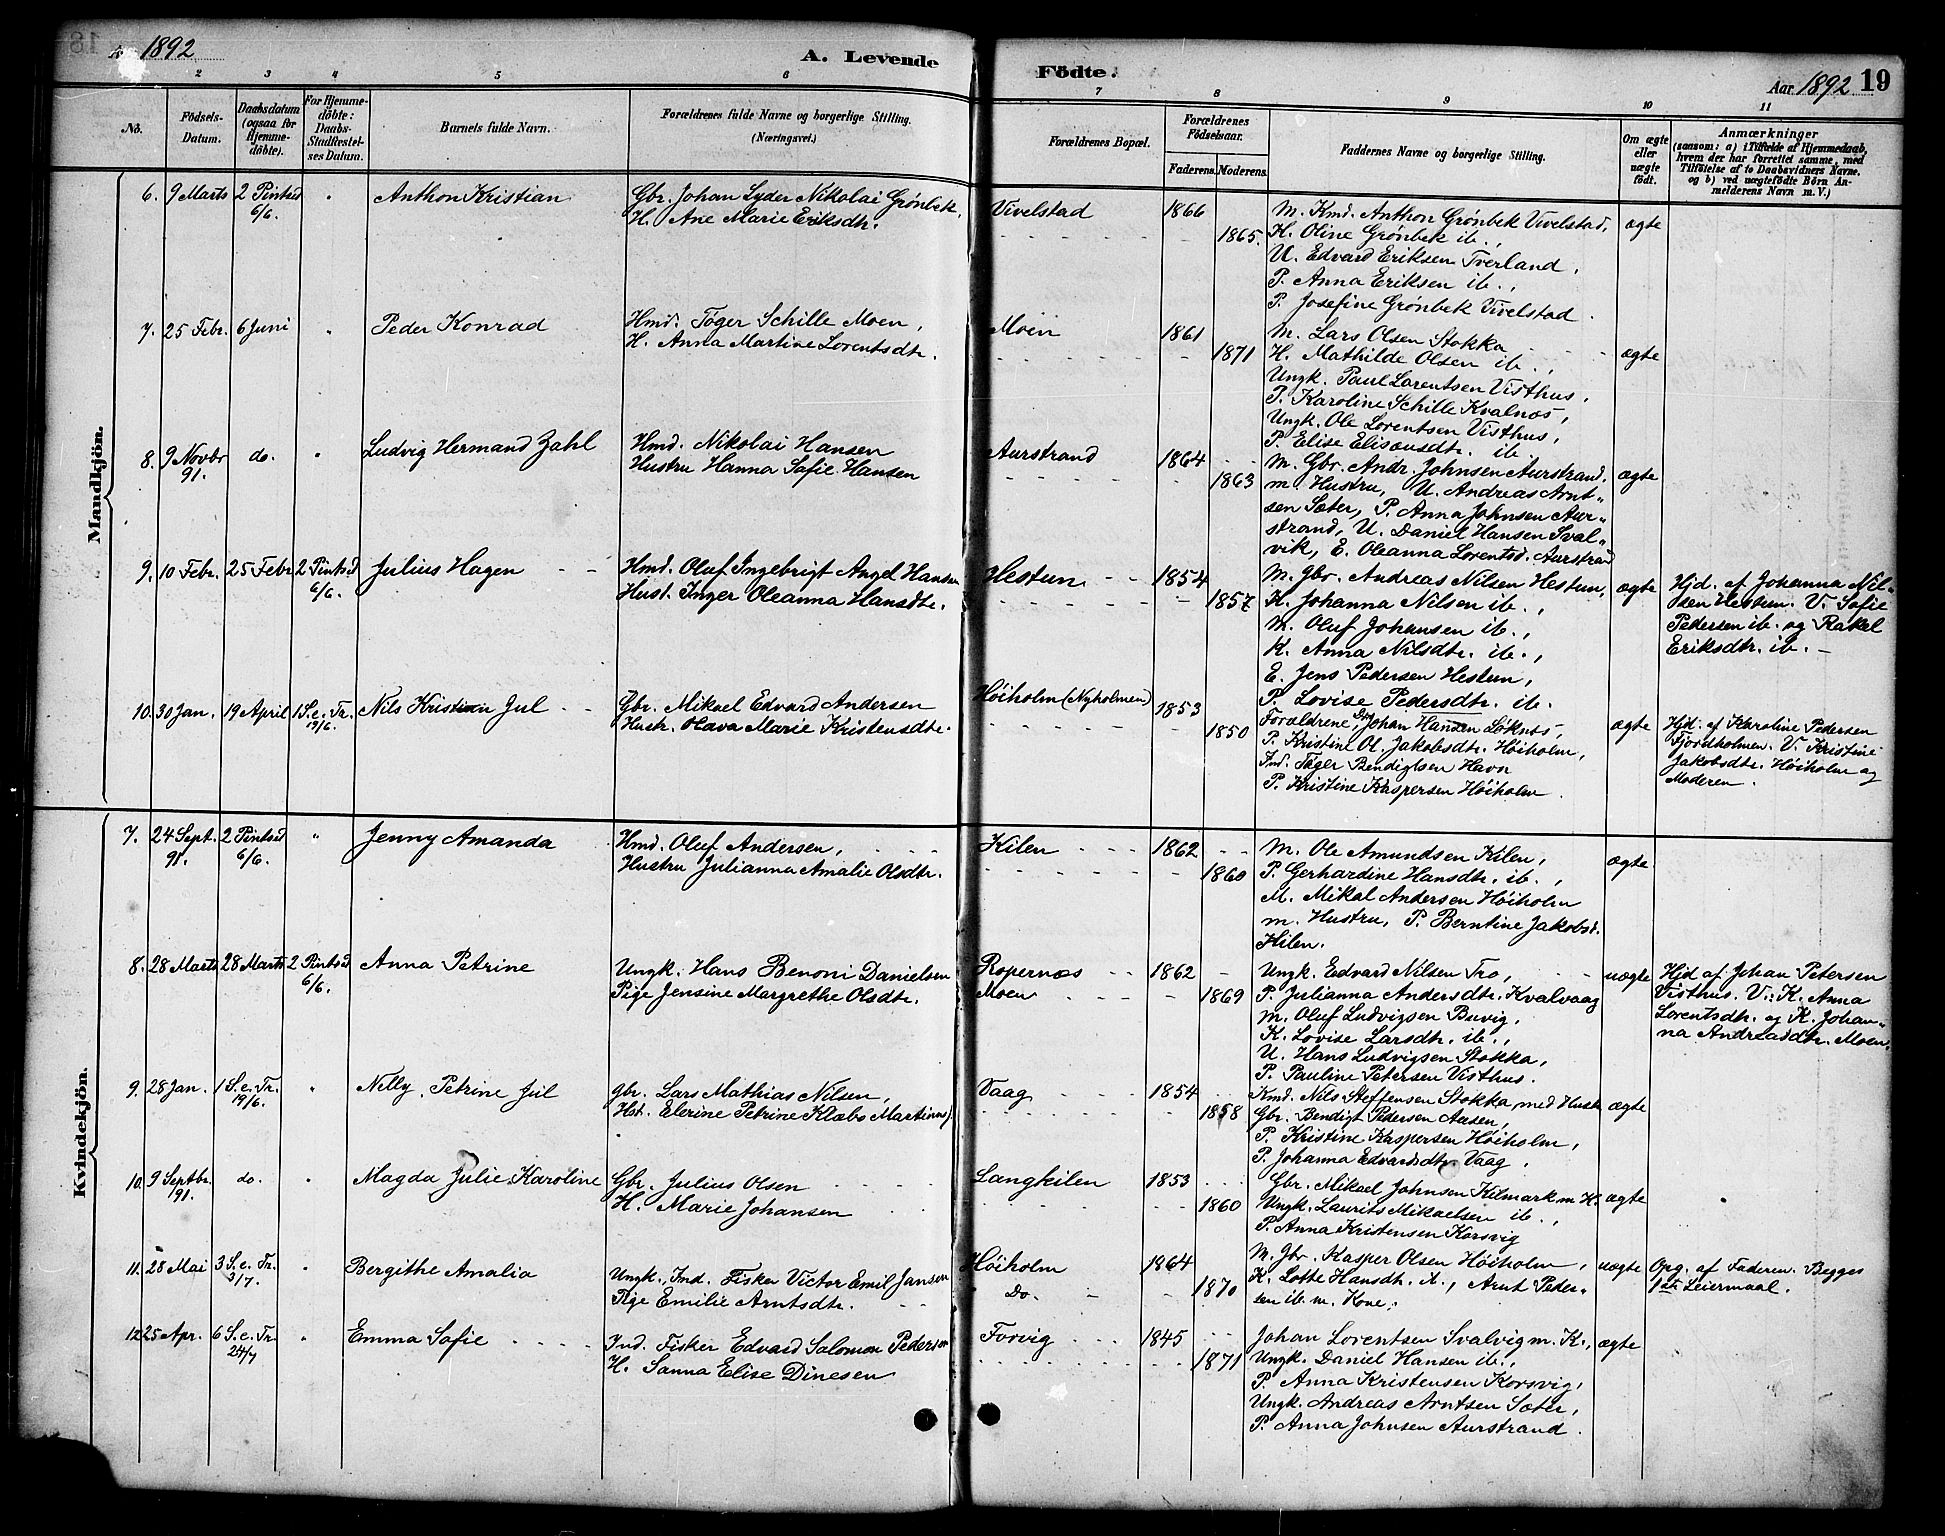 Aar 1892
A. Levende
Födte.
Aar 1892 19
2 3 4 5 6 7 8 9 10 11
No.
Födsels-
Datum.
Daabsdatum
(ogsaa for
Hjemme-
döbte).
For Hjemme-
döbte:
Daabs-
Stadfæstel-
ses Datum.
Barnets fulde Navn.
Forældrenes fulde Navne og borgerlige Stilling.
(Næringsvei.)
Forældrenes Bopæl.
Forældrenes
Födselsaar.
Faderens. Moderens.
Faddernes Navne og borgerlige Stilling.
Om ægte
eller
uægte
födt.
Anmærkninger
(saasom: a) i Tilfælde af Hjemmedaab,
hvem der har forrettet samme, med
Tilföielse af to Daabsvidners Navne,
og b) ved uægtefödte Börn An-
melderens Navn m. V.)
Mandkjön.
6. 9 Marts 2 Pintsed 6/6. " Anthon Kristian
Gbr. Johan Lyder Nikolai Grønbek,
H. Ane Marie Eriksdtr.
Vivelstad 1866 1865.
M. Kmd. Anthon Grønbek Vivelstad,
K. Oline Grønbek ib.,
U. Edvard Eriksen Tverland,
P. Anna Eriksen ib.,
P. Josefine Grønbek Vivelstad.
ægte
7. 25 Febr. 6 Juni " Peder Konrad
Hmd. Tøger Schille Moen,
H. Anna Martine Lorentsdtr.
Moen 1861 1871
M. Lars Olsen Stokka
K. Mathilde Olsen ib.,
Ungk. Paul Lorentsen Visthus,
P. Karoline Schille Kvalnæs,
Ungk. Ole Lorentsen Visthus,
P. Elise Elisæusdtr. ib.
ægte
8. 9 Novbr 91. do. " Ludvig Hermand Zahl
Hmd. Nikolai Hansen
Hustru Hanna Sofie Hansen
Aurstrand 1864 1863
M. Gbr. Andr. Johnsen Aurstrand,
m. Hustru, U. Andreas Arnt-
sen Sæter, P. Anna Johnsen Aur-
strand, U. Daniel Hansen Sval-
vik, E. Oleanna Lorentsd. Aurstrand
ægte
9. 10 Febr. 25 Febr 2 Pintsd 6/6. Julius Hagen
Hmd. Oluf Ingebrigt Angel Hansen
Hust. Inger Oleanna Hansdtr.
Hestun 1854 1857
M. Gbr. Andreas Nilsen Hestun,
K. Johanna Nilsen ib.,
M. Oluf Johansen ib.,
K. Anna Nilsdtr. ib.,
E. Jens Pedersen Hestun,
P. Lovise Pedersdtr. ib.
ægte
Hjd. af Johanna Nil-
sen Hestun. V. Sofie
Pedersen ib. og Rakel
Eriksdtr. ib.
10. 30 Jan. 19 April 1 S. e. Tr. 19/6. Nils Kristian Jul
Gbr. Mikael Edvard Andersen
Hustr. Olava Marie Kristensdtr.
Høiholm (Nyholmen) 1853 1850
Forældrene, Gbr Johan Hansen Løknes,
P. Kristine Ol. Jakobsdtr. Høiholm,
Ind. Tøger Bendigtsen Havn
P. Kristine Kaspersen Høiholm.
ægte
Hjd. af Karoline Pedersen
Fjordholmen. V. Kristine
Jakobsdtr. Høiholm og
Moderen.
Kvindekjön.
7. 24 Sept. 91. 2 Pintsed 6/6. " Jenny Amanda
Hmd. Oluf Andersen,
Hustru Julianna Amalie Olsdtr.
Kilen 1862 1860
M. Ole Amundsen Kilen,
P. Gerhardine Hansdtr. ib.,
M. Mikal Andersen Høiholm
m. Hustru, P. Berntine Jakobsd.
Kilen.
ægte
8. 28 Marts 28 Marts 2 Pintsed 6/6. Anna Petrine
Ungk. Hans Benoni Danielsen
Pige Jensine Margrethe Olsdtr.
Ropernæs
Moen
1862 1869
Ungk. Edvard Nilsen Tro,
P. Julianna Andersdtr. Kvalvaag
M. Oluf Ludvigsen Buvig,
K. Lovise Larsdtr. ib.,
U. Hans Ludvigsen Stokka,
P. Pauline Petersen Visthus.
uægte
Hjd af Johan Petersen
Visthus. V.: K. Anna
Lorentsdtr. og K. Johan-
na Andreasdtr. Moen.
9. 28 Jan. 1 S. e. Tr. 19/6. " Nelly Petrine Jul
Gbr. Lars Mathias Nilsen,
Hst. Elerine Petrine Klæbo
Vaag 1854 1858
Kmd. Nils Steffensen Stokka med Hustr.
Gbr. Bendigt Pedersen Aasen,
P. Kristine Kaspersen Høiholm,
P. Johanna Edvardsdtr. Vaag.
ægte
10. 9 Septbr. 91. do. " Magda Julie Karoline
Gbr. Julius Olsen
H. Marie Johansen
Langkilen 1853 1860
Gbr. Mikael Johnsen Kilmark m. K.
Ungk. Laurits Mikaelsen ib.,
P. Anna Kristensen Korsvig
ægte
11. 28 Mai 3 S. e. Tr. 3/7. " Bergithe Amalia
Ungk. Ind. Fisker Victor Emil Jansen
Pige Emilie Arntsdtr.
Høiholm
Do.
1864 1870
M. Gbr. Kasper Olsen Høiholm,
K. Lotte Hansdtr. ib., Arnt Peder-
sen ib. m. Kone.
uægte
Opg. af Faderen. Begges
1ste Leiermaal.
12. 25 Apr. 6 S. e. Tr. 24/7 " Emma Sofie
Ind. Fisker Edvard Salomon Pedersen
H. Sanna Elise Dinesen
Forvig 1845 1871
Johan Lorentsen Svalvig m. K.,
Ungk. Daniel Hansen ib.,
P. Anna Kristensen Korsvig,
Ungk. Andreas Arntsen Sæter,
P. Anna Johnsen Aurstrand.
ægte